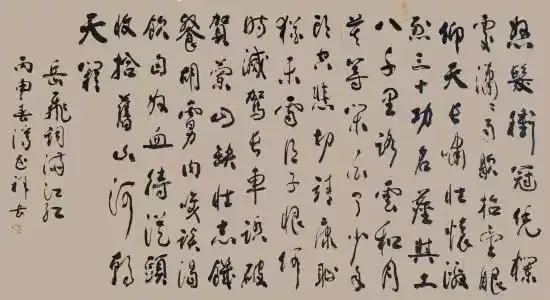 怒髮衝冠凭欄
處瀟〻雨歇抬望眼
仰天長嘯壯懷激
烈三十功名塵與土
八千里路雲和月
莫等閑白了少年
頭空悲切靖康恥
猶未雪臣子恨何
時滅駕長車踏破
賀蘭山缺壯志飢
餐胡虜肉笑談渴
飲匈奴血待從頭
收拾舊山河朝
天闕
岳飛詞滿江紅
丙申春